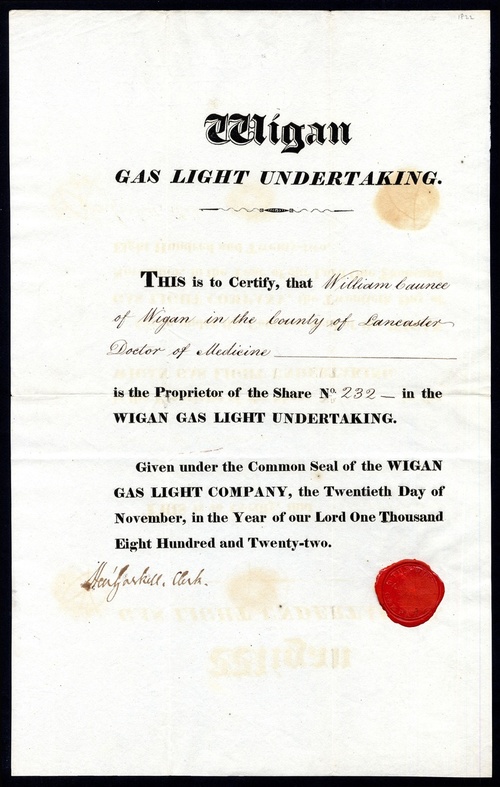 1822
Wigan
GAS LIGHT UNDERTAKING.
THIS is to Certify, that William Caunce
of Wigan in the County of Lancaster
Doctor of Medicine
is the Proprietor of the Share No. 232 — in the
WIGAN GAS LIGHT UNDERTAKING.
Given under the Common Seal of the WIGAN
GAS LIGHT COMPANY, the Twentieth Day of
November, in the Year of our Lord One Thousand
Eight Hundred and Twenty-two.
Hen' Gaskell, Clerk.